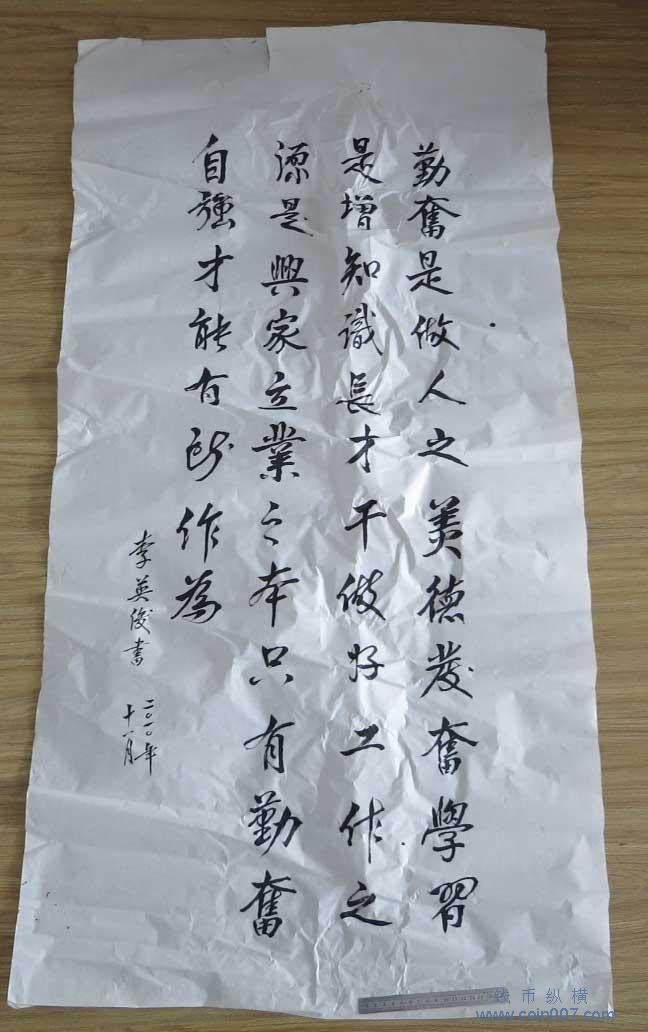 勤奮是做人之美德發奮學習
是增知識長才干做好工作之
源是興家立業之本只有勤奮
自強才能有所作為
李英俊書
二〇一〇年
十一月
钱币纵横
www.coin007.com